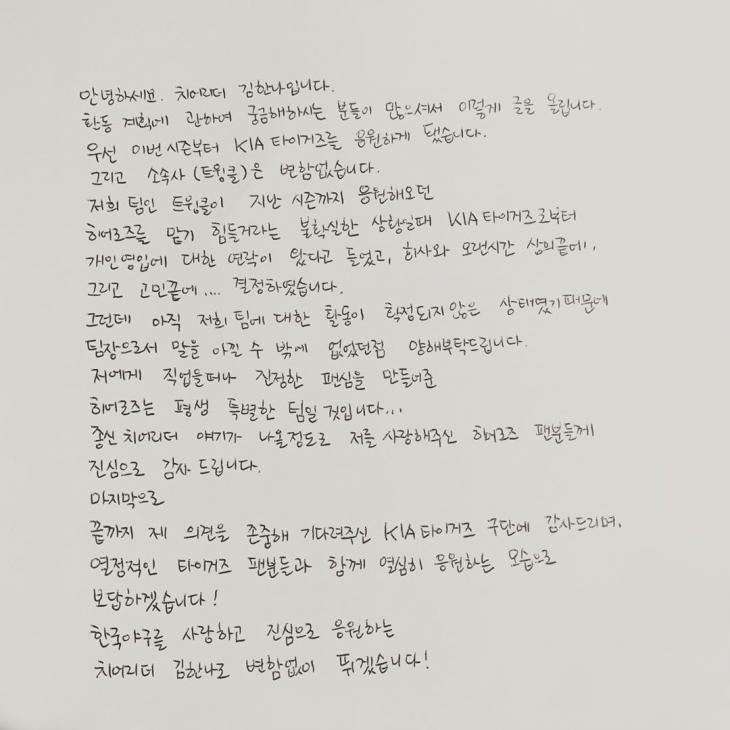 안녕하세요. 치어리더 김한나입니다.
활동 계획에 관하여 궁금해하시는 분들이 많으셔서 이렇게 글을 올립니다.
우선 이번 시즌부터 KIA 타이거즈를 응원하게 됐습니다.
그리고 소속사 (트윙클)은 변함없습니다.
저희 팀인 트윙클이 지난 시즌까지 응원해오던
히어로즈를 맡기 힘들거라는 불확실한 상황일때 KIA 타이거즈로부터
개인영입에 대한 연락이 왔다고 들었고, 회사와 오랜시간 상의끝에..
그리고 고민끝에.... 결정하였습니다.
그런데 아직 저희 팀에 대한 활동이 확정되지 않은 상태였기 때문에
팀장으로서 말을 아낄 수 밖에 없었던점 양해부탁드립니다.
저에게 직업을떠나 진정한 팬심을 만들어준
히어로즈는 평생 특별한 팀일 것입니다...
종신 치어리더 얘기가 나올정도로 저를 사랑해주신 히어로즈 팬분들께
진심으로 감사 드립니다.
마지막으로
끝까지 제 의견을 존중해 기다려주신 KIA 타이거즈 구단에 감사드리며,
열정적인 타이거즈 팬분들과 함께 열심히 응원하는 모습으로
보답하겠습니다!
한국야구를 사랑하고 진심으로 응원하는
치어리더 김한나로 변함없이 뛰겠습니다!